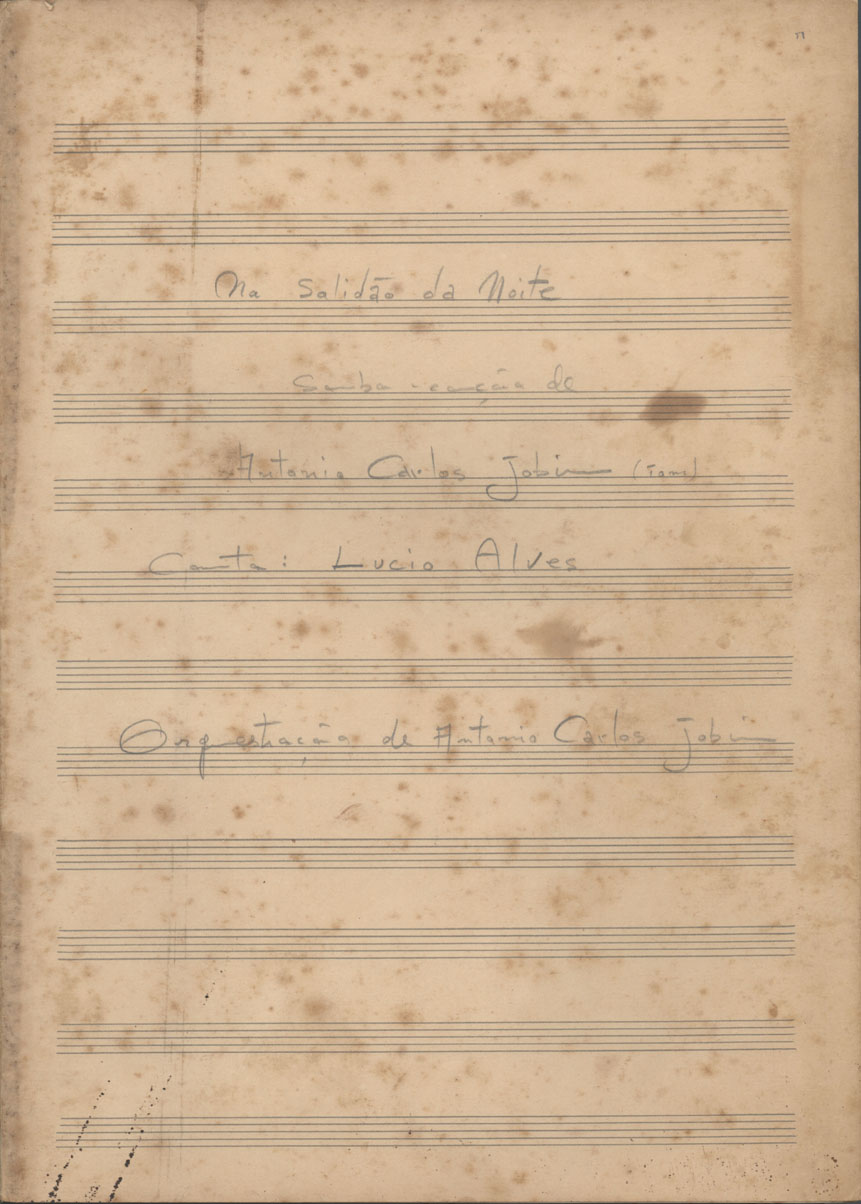 Na Solidão da Noite
Samba-canção de
Antonio Carlos Jobim (Tom)
Canta: Lucio Alves
Orquestração de Antonio Carlos Jobim